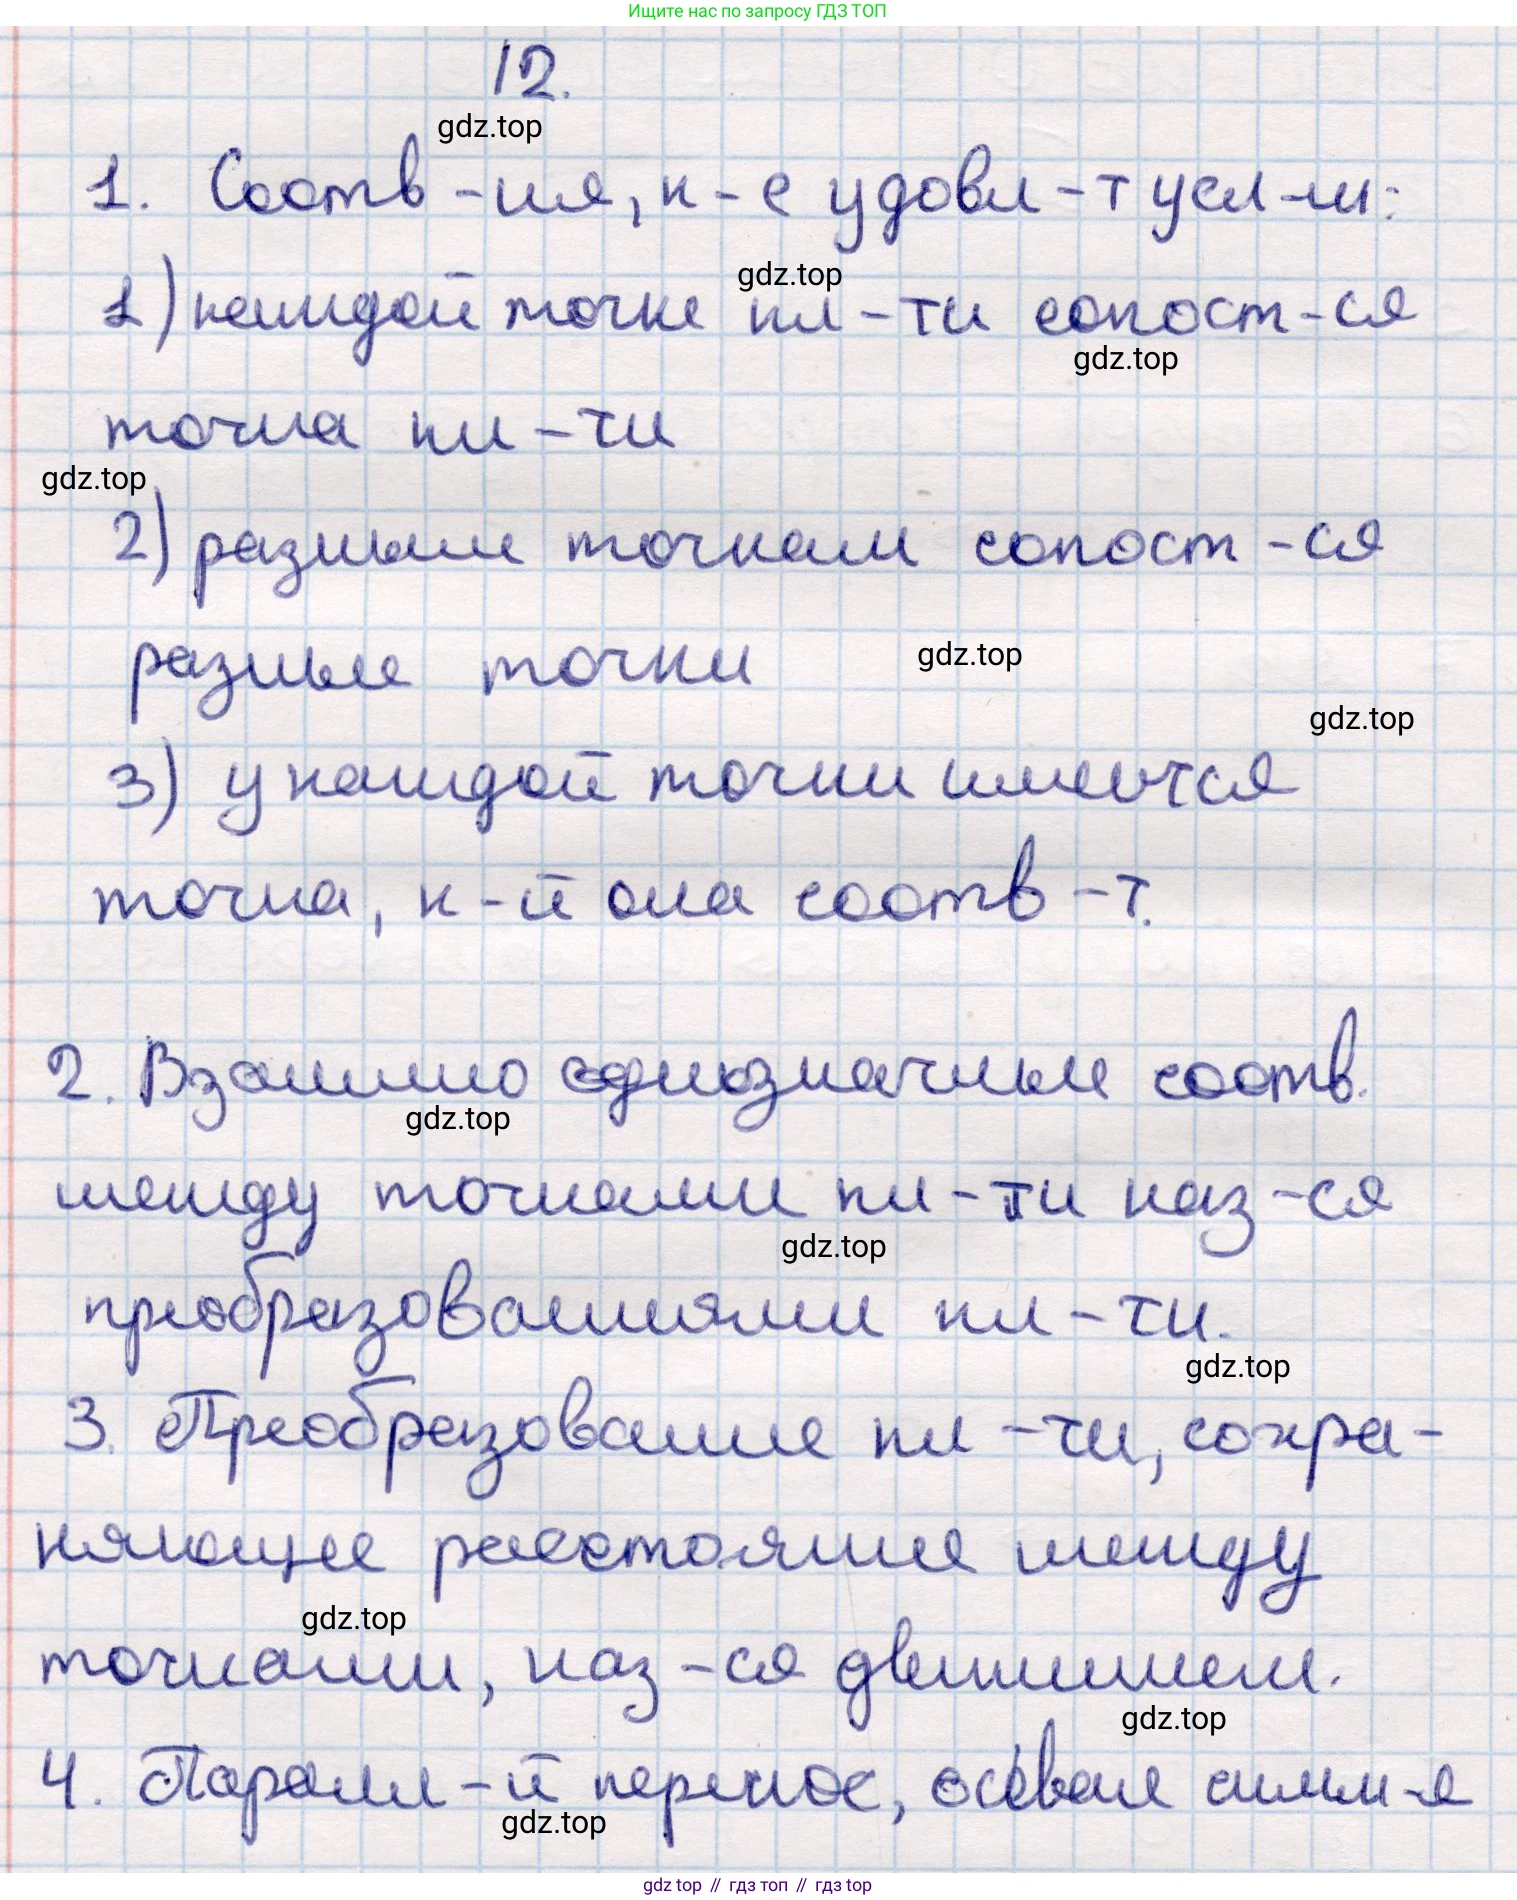 Ищите нас по запросу ГДЗ ТОП
12.
gdz.top
1. Соотв-ия, к-е удовл-т усл-ия:
gdz.top
1) каждой точке пл-ти сопост-ся
gdz.top
точка пл-ти
gdz.top
2) разным точкам сопост-ся
разные точки
gdz.top
gdz.top
3) у каждой точки имеется
точка, к-й она соотв-т.
2. Взаимно однозначные соотв.
gdz.top
между точками пл-ти наз-ся
gdz.top
преобразованиями пл-ти.
gdz.top
3. Преобразование пл-ти, сохра-
няющее расстояние между
gdz.top
точками, наз-ся движением.
gdz.top
4. Паралл-й перенос, осевая симм-я
gdz.top
gdz top // гдз топ // гдз top